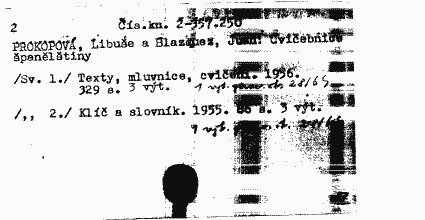 2 Čís.kn. 2-357.250
PROKOPOVÁ, Libuše a Blazquez, Juan. Cvičebnice
španělštiny
/Sv. 1./ Texty, mluvnice, cvičení. 1956.
329 s. 3 výt.
/,, 2./ Klíč a slovník. 1955. 86 s. 3 výt.